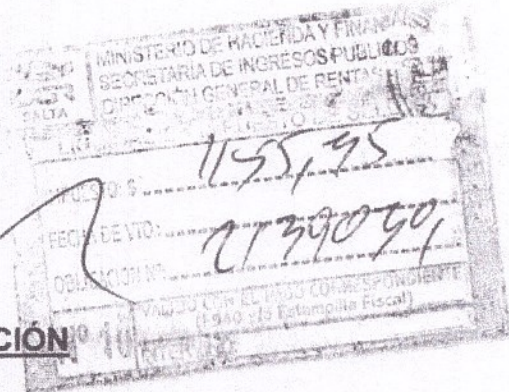 MINISTERIO DE HACIENDA Y FINANZAS
SECRETARIA DE INGRESOS PUBLICOS
DIRECCIÓN GENERAL DE RENTAS
SALTA
IMPUESTO: $
1155,95
FECHA DE VTO:
OBLIGACION Nº:
2139050
VALIDO CON EL PAGO CORRESPONDIENTE
Estampilla Fiscal)
Nº 10
CIÓN